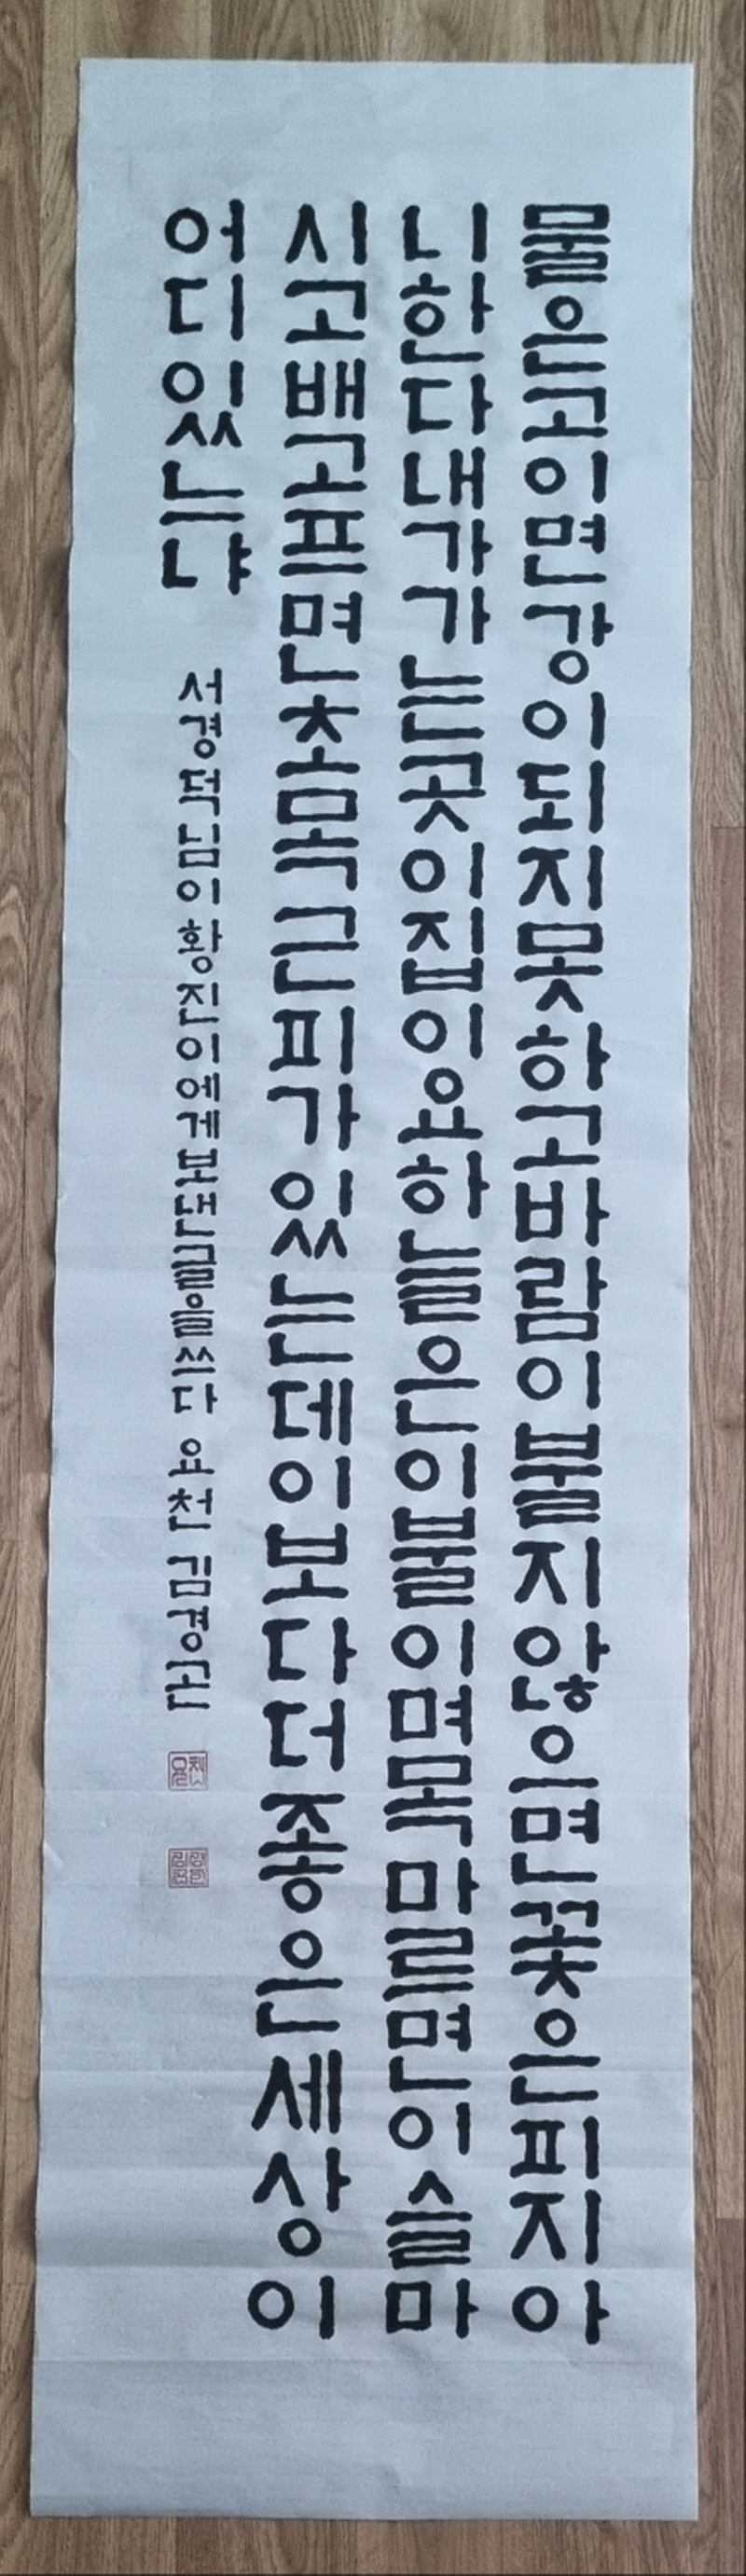 물은고이면강이되지못하고바람이불지않으면꽃은피지아
니한다내가가는곳이집이요하늘은이불이며목마르면이슬마
시고배고프면초목근피가있는데이보다더좋은세상이
어디있느냐
서경덕님이황진이에게보낸글을쓰다 요천 김경곤